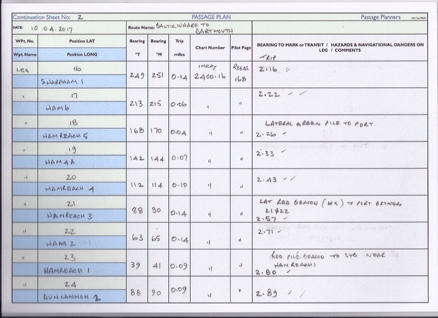 Continuation Sheet No: 2 PASSAGE PLAN Passage Planners
DATE: 10.04.2017 Route Name: BALTIC WHARF TO DARTMOUTH
WPt. No. Position LAT Bearing Bearing Trip Chart Number Pilot Page BEARING TO MARK or TRANSIT / HAZARDS & NAVIGATIONAL DANGERS ON
Wpt. Name Position LONG °T °M miles LEG / COMMENTS
LEG 16 249 251 0.14 IMRAY 2400.16 16B TRIP 2.16
SHARPHAM 1
17 213 215 0.06 " " 2.22
HAM 6
18 168 170 0.04 " " LATERAL GREEN PILE TO PORT
HAMREACH 5 2.26
19 142 144 0.07 " " 2.33
HAM 4A
20 112 114 0.10 " " 2.43
HAMREACH 4
21 88 90 0.14 " " LAT RED BEACON TO PORT BETWEEN
HAMREACH 3 21 & 22
2.57
22 63 65 0.14 " " 2.71
HAM 2
23 39 41 0.09 " " RED PILE BEACON TO STB NEAR
HAMREACH 1 HAMREACH 1
2.80
24 88 90 0.09 " " 2.89
DUNCANNON 2